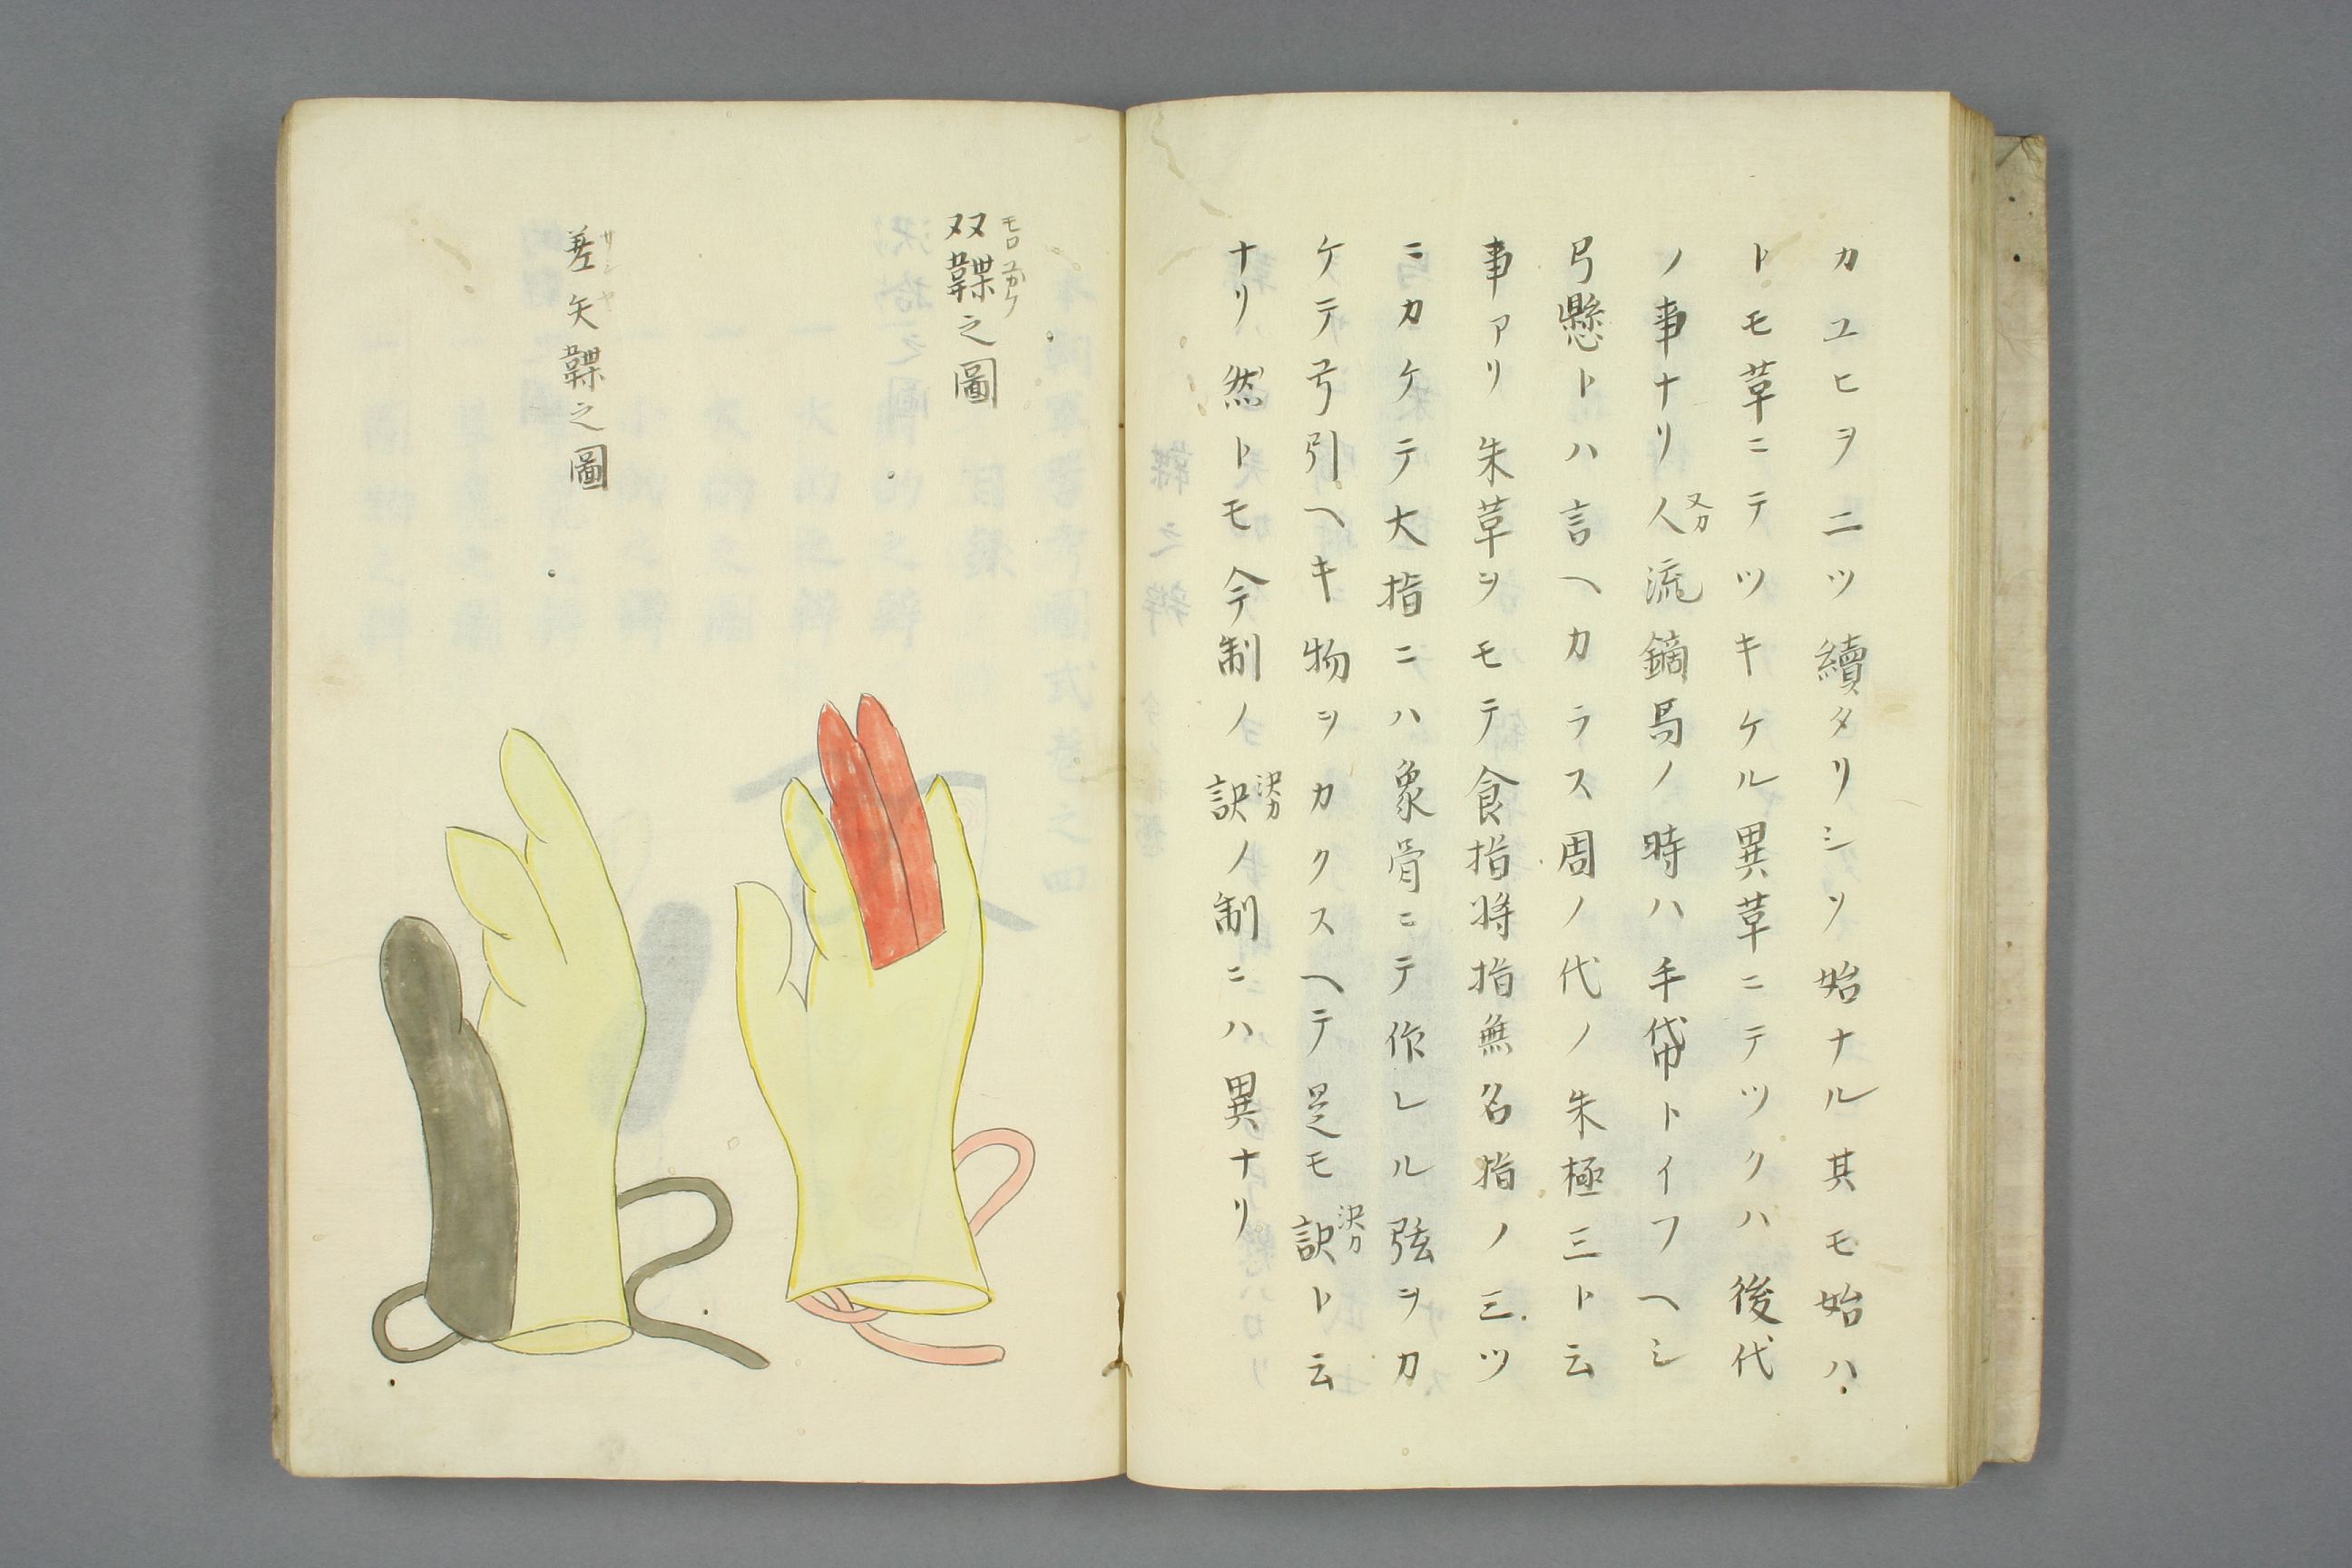 カユヒヲニツ續タリシソ始ナル其モ始ハ
トモ草ニテツキケル異草ニテツクハ後代
ノ事ナリ人流鏑馬ノ時ハ手袋トイフヘシ
又カ
弓懸トハ言ヘカラス周ノ代ノ朱極三ト云
事アリ朱草ヲモテ食指将指無名指ノ三ツ
ニカケテ大指ニハ象骨ニテ作レル弦ヲカ
ケテ弓引ヘキ物ヲカクスヘテ是モ訣ト云
決カ
ナリ然トモ今制ノ訣ノ制ニハ異ナリ
決カ
双韘之圖
モロユカケ
差矢韘之圖
サシヤ